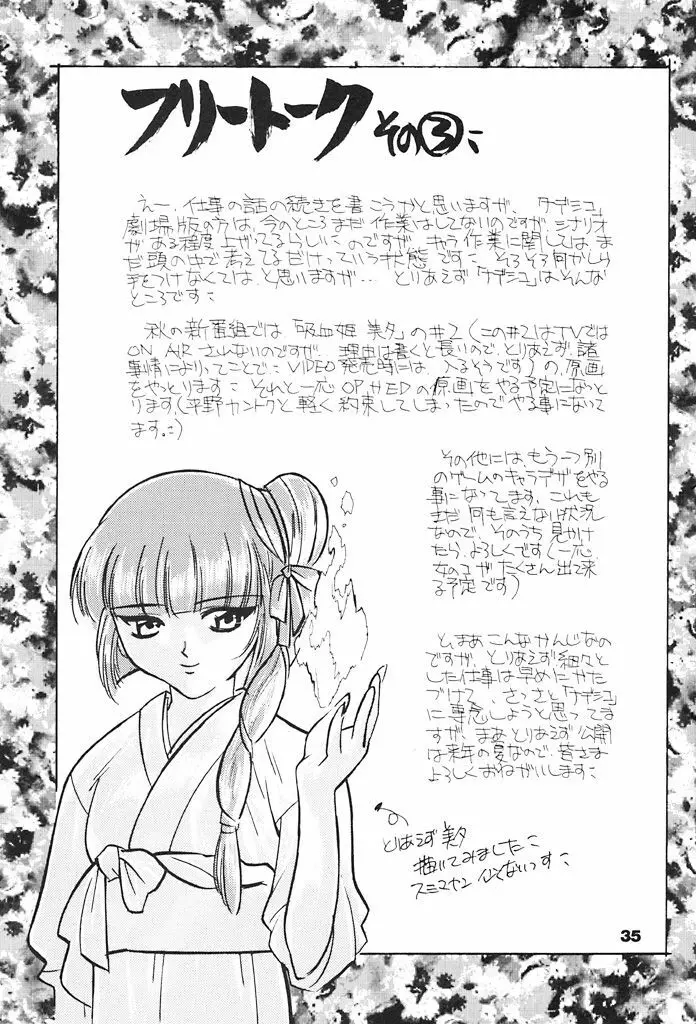 フリートーク その③
えー、仕事の話の続きを書こうかと思いますが、「ナデシコ」
劇場版の方は、今のところまだ作業はしてないのですが、シナリオ
がある程度上がってるらしいのですが、キャラ作業に関しては、ま
だ頭の中で考えてるだけっていう状態です。そろそろ何かしら
手をつけなくては、と思いますが… とりあえず「ナデシコ」はそんな
ところです。
秋の新番組では「吸血姫 美夕」の#2(この#2はTVでは
ON AIR されないのですが、理由は書くと長いので、とりあえず、諸
事情により、ってことで。VIDEO発売時には、入るそうです)の原画
をやっとります。それと一応 OP、EDの原画をやる予定になっと
ります。(平野カントクと軽く約束してしまったのでやる事になって
ます。)
その他には、もう一つ別
のゲームのキャラデザをやる
事になってます、これも
まだ何も言えない状況
なので、そのうち見かけ
たら、よろしくです(一応
女のコがたくさん出て来
る予定です)
と、まあこんなかんじなの
ですが、とりあえず細々と
した仕事は早めにかた
づけて、さっさと「ナデシコ」
に専念しようと思ってま
すが、まあとりあえず公開
は来年の夏なので、皆さま
よろしくおねがいします。
とりあえず 美夕
描いてみました。
スミマセン 似てないっす。
35